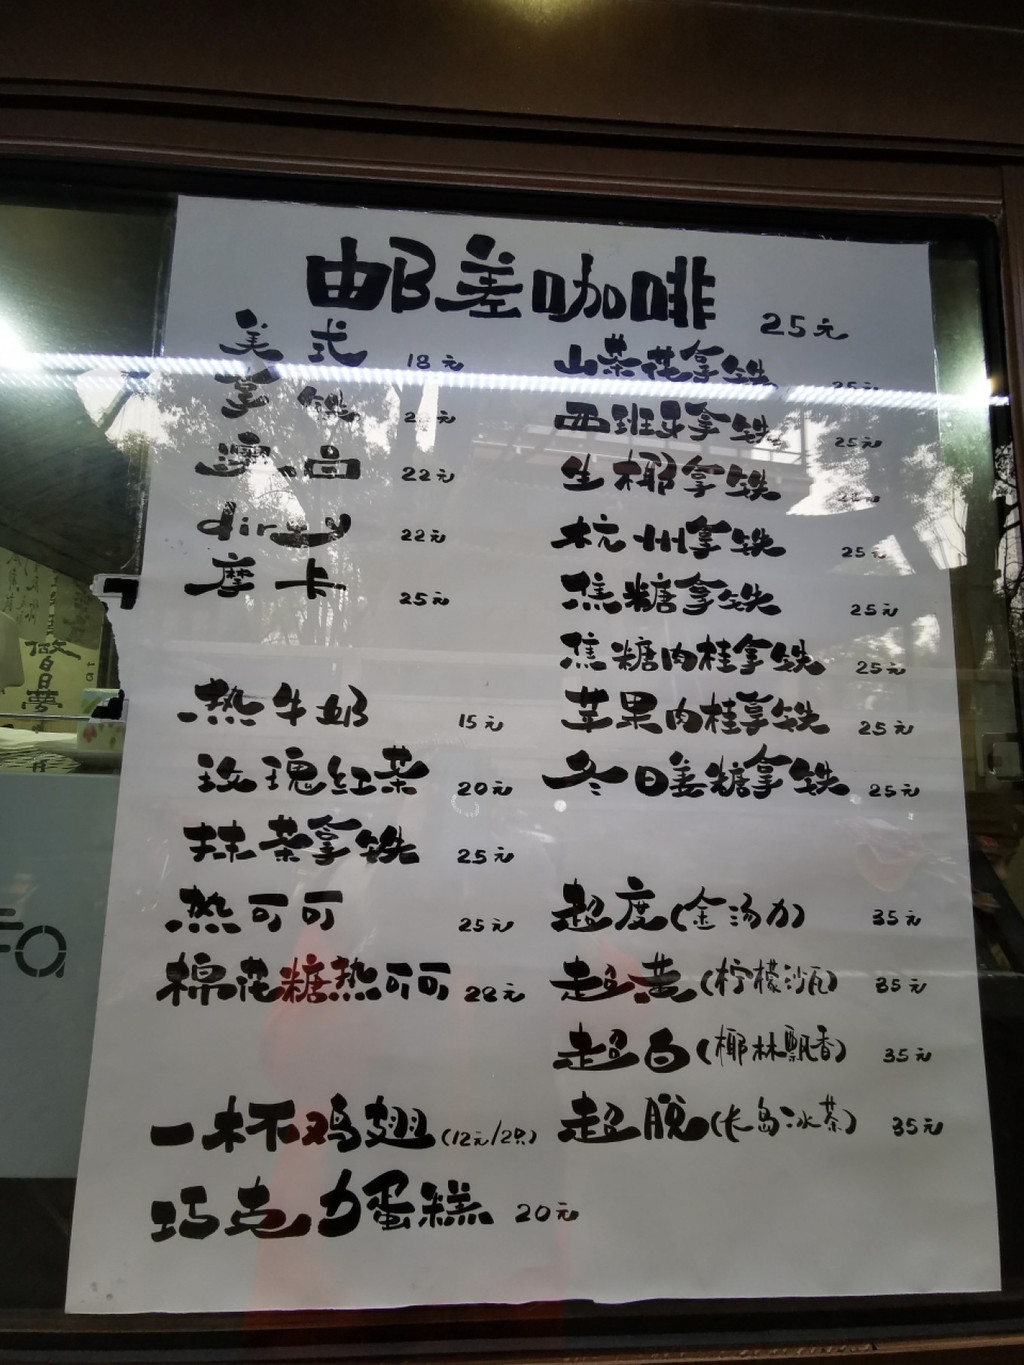 邮差咖啡 25元
美式 18元
拿铁
澳白 22元
dirty 22元
摩卡 25元
热牛奶 15元
玫瑰红茶 20元
抹茶拿铁 25元
热可可 25元
棉花糖热可可 28元
一杯鸡翅(12元/2只)
巧克力蛋糕 20元
山茶花拿铁 25元
西班牙拿铁 25元
生椰拿铁
杭州拿铁 25元
焦糖拿铁 25元
焦糖肉桂拿铁 25元
苹果肉桂拿铁 25元
冬日姜糖拿铁 25元
超度(金汤力) 35元
超黄(柠檬沙瓦) 35元
超白(椰林飘香) 35元
超脱(长岛冰茶) 35元
做白日夢